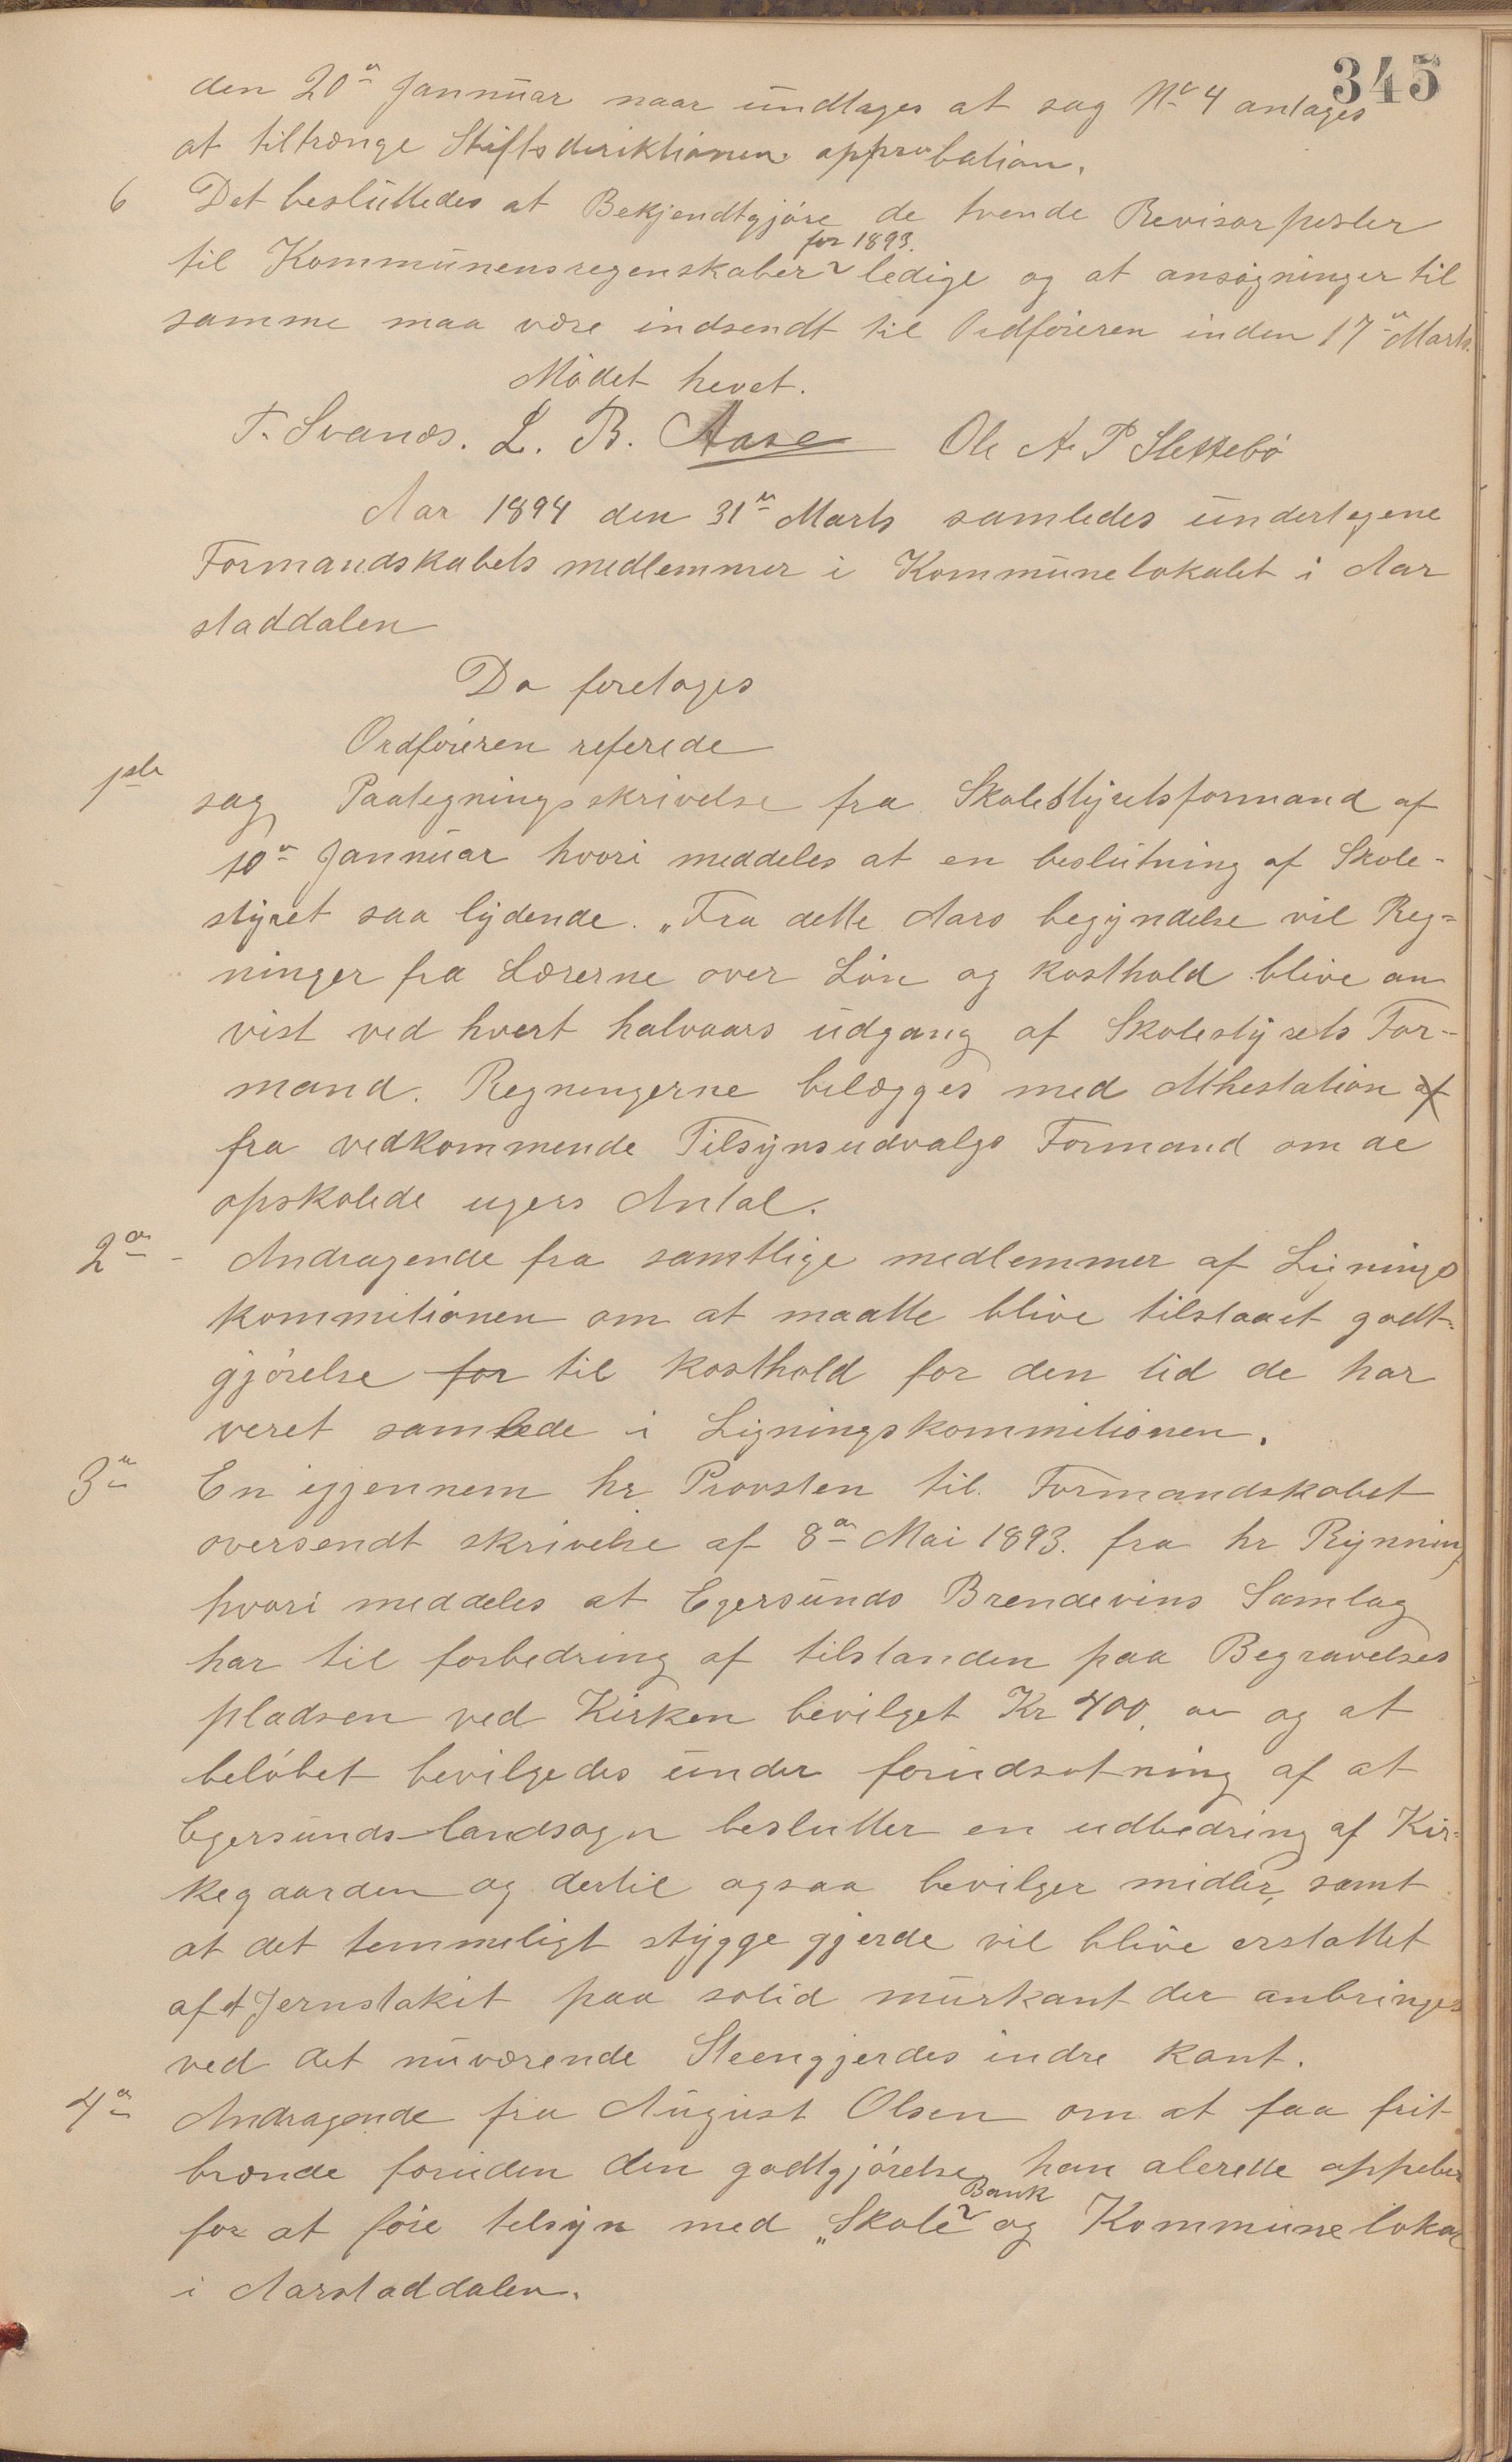 345
den 20de Jannuar naar undtages at sag No 4 antages
at tiltrænge Stiftsdiriktionen approbation.
6 Det besluttedes at Bekjendtgjøre de tvende Revisorposter
for 1893.
til Kommunensregenskaber ledige og at ansøgninger til
samme maa være indsendt til Ordføreren inden 17de Marts.
Mødet hevet.
T. Svanes. L. B. Aase Ole A. P Slettebø
Aar 1894 den 31te Marts samledes undertegene
Formandskabets medlemmer i Kommunelokalet i Aar
staddalen
Da foretoges
Ordføreren referede
1ste sag Paategningsskrivelse fra Skolestyretsformand af
10de Jannuar hvori meddeles at en beslutning af Skole-
styret saa lydende. „Fra dette Aars begyndelse vil Reg-
ninger fra Lærerne over Løn og kosthold blive an
vist ved hvert halvaars udgang af Skolestyrets For-
mand. Regningerne belægges med Athestation af
fra vedkommende Tilsynsudvalgs Formand om de
opskolede ugers Antal.
2den - Andragende fra samtlige medlemmer af Lignings
kommitionen om at maatte blive tilstaaet godt-
gjørelse for til kosthold for den tid de har
veret samlede i Ligningskommitionen.
3de En igjennem hr Provsten til Formandskabet
oversendt skrivelse af 8de Mai 1893. fra hr Rynning
hvori meddeles at Egersunds Brendevins Samlag
har til forbedring af tilstanden paa Begravelses
pladsen ved Kirken bevilget Kr 400, og at
beløbet bevilgedes under forudsetning af at
Egersunds-landsogn beslutter en udbedring af Kir-
kegaarden og dertil ogsaa bevilger midler, samt
at det temmeligt stygge gjerde vil blive erstattet
af et Jernstakit paa solid murkant der anbringes
ved det nuværende Steengjerdes indre kant.
4de Andragende fra August Olsen om at faa frit
brænde foruden den godtgjørelse han alerede oppeber
Bank
for at føre telsyn med „Skole og Kommunelokal
i Aarstaddalen.